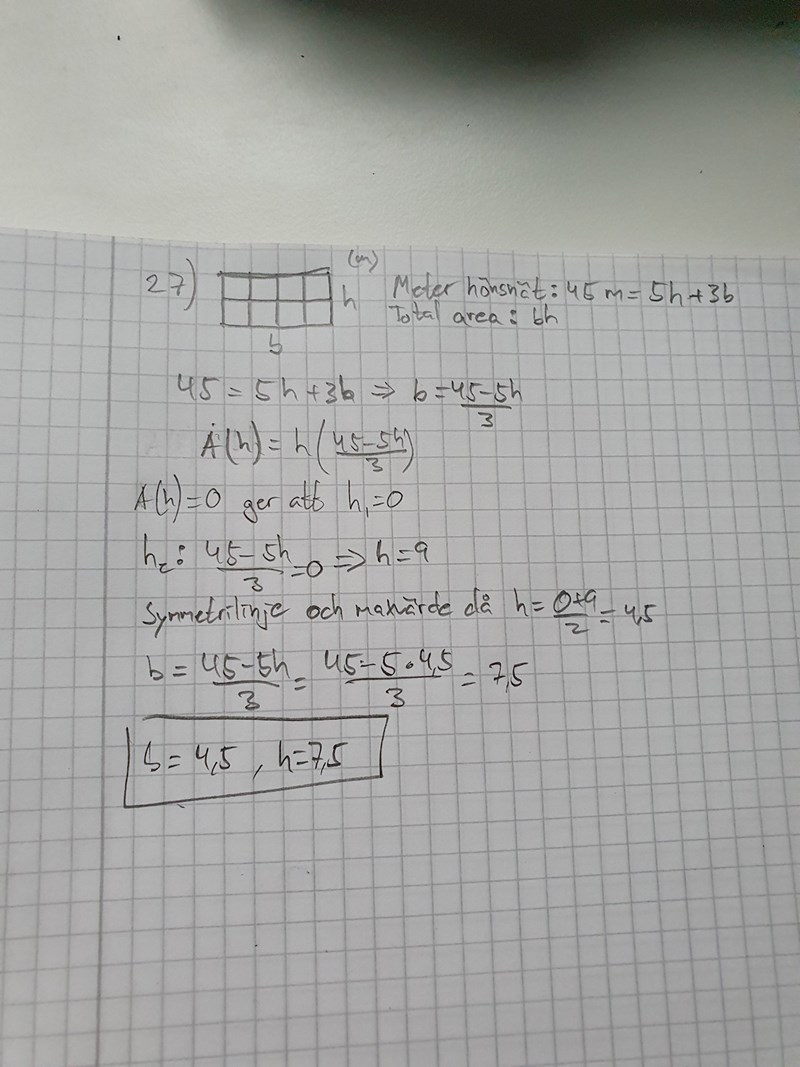 27)
(m)
h
b
Meter hönsnät: 45 m = 5h+3b
Total area: bh
45 = 5h+3b ⇒ b = (45-5h)/3
A(h) = h((45-5h)/3)
A(h)=0 ger att h₁=0
h₂: (45-5h)/3 = 0 ⇒ h=9
Symmetrilinje och maxvärde då h = (0+9)/2 = 4,5
b = (45-5h)/3 = (45-5·4,5)/3 = 7,5
b = 4,5 , h=7,5